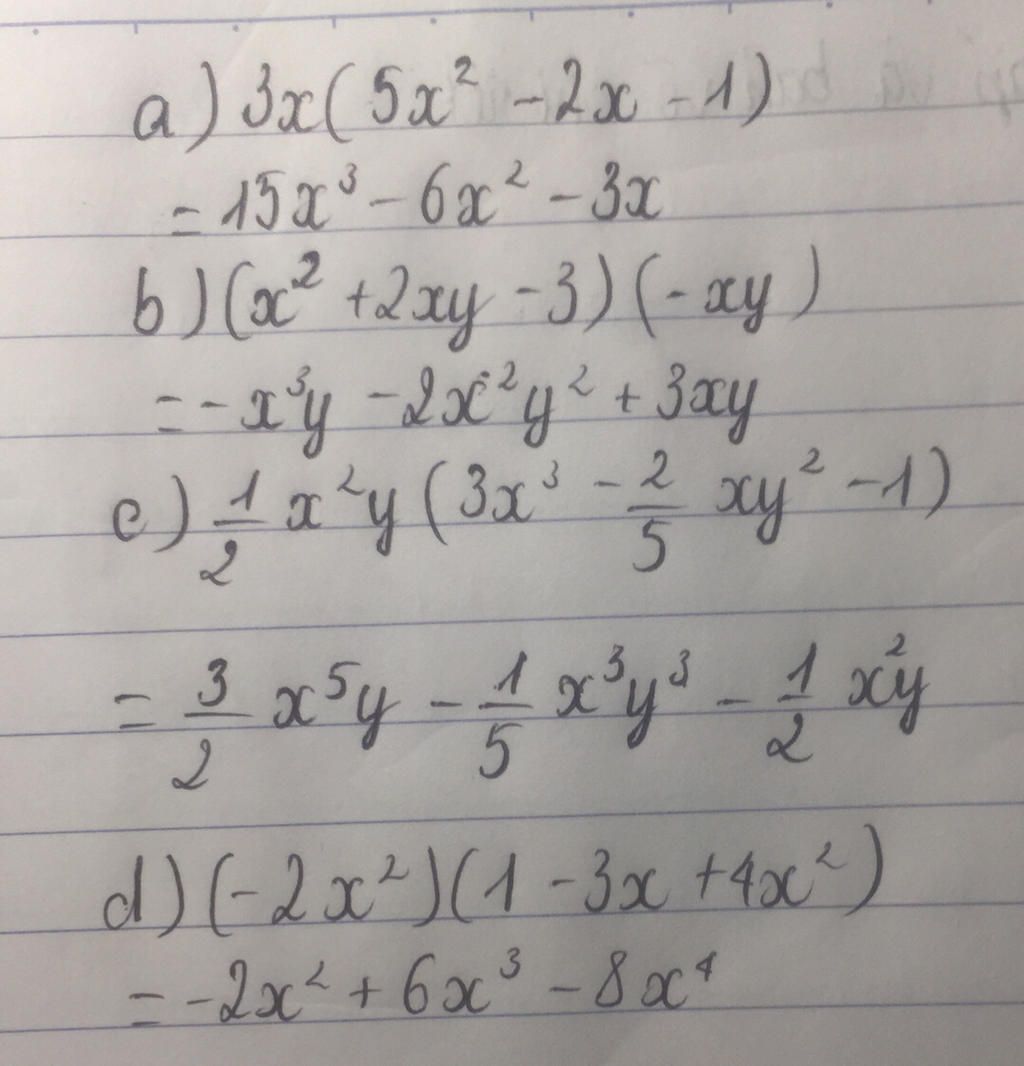 a) 3x(5x² - 2x - 1)
= 15x³ - 6x² - 3x
b) (x² + 2xy - 3)(-xy)
= -x³y - 2x²y² + 3xy
c) 1/2 x²y (3x³ - 2/5 xy² - 1)
= 3/2 x⁵y - 1/5 x³y³ - 1/2 x²y
d) (-2x²)(1 - 3x + 4x²)
= -2x² + 6x³ - 8x⁴